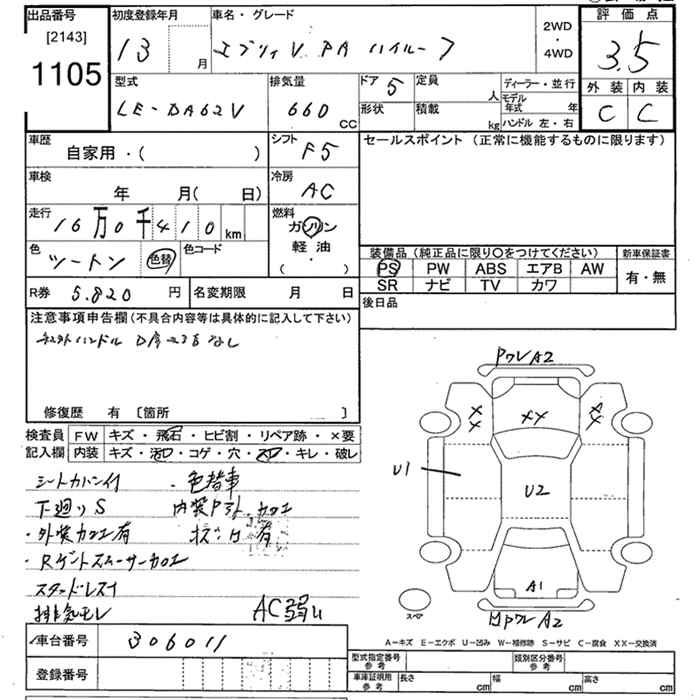 出品番号
[2143]
1105
初度登録年月
13
月
車名・グレード
エブリィV PA ハイルーフ
2WD
・
4WD
評価点
3.5
外装 内装
C C
型式
LE-DA62V
排気量
660
CC
ドア 5
形状
定員
人
積載
kg
ディーラー・並行
モデル
年式 年
ハンドル 左・右
車歴
自家用・( )
シフト
F5
車検
年 月( 日)
冷房
AC
走行
16万0千410 km
燃料
ガソリン
軽油・
( )
色
ツートン
色替
色コード
R券 5.820 円
名変期限 月 日
セールスポイント(正常に機能するものに限ります)
装備品(純正品に限り〇をつけてください)
PS PW ABS エアB AW
SR ナビ TV カワ
新車保証書
有・無
後日品
注意事項申告欄(不具合内容等は具体的に記入して下さい)
ハンドル
なし
修復歴 有 [箇所 ]
検査員
記入欄
FW キズ・飛石・ヒビ割・リペア跡・×要
内装 キズ・汚レ・コゲ・穴・スレ・キレ・破レ
シートカバー付
・色替車
下廻りS
・外装カロエ有
有
・Rゲートスムーサーカロエ
スタッドレス付
排気モレ
AC弱い
PワレA2
XX
XX
XX
U1
U2
A1
スペア
PワレA2
A-キズ E-エクボ U-凹み W-補修跡 S-サビ C-腐食 XX-交換済
車台番号
306011
登録番号
型式指定番号
参考
類別区分番号
参考
車庫証明用
参考
長さ cm
幅 cm
高さ cm